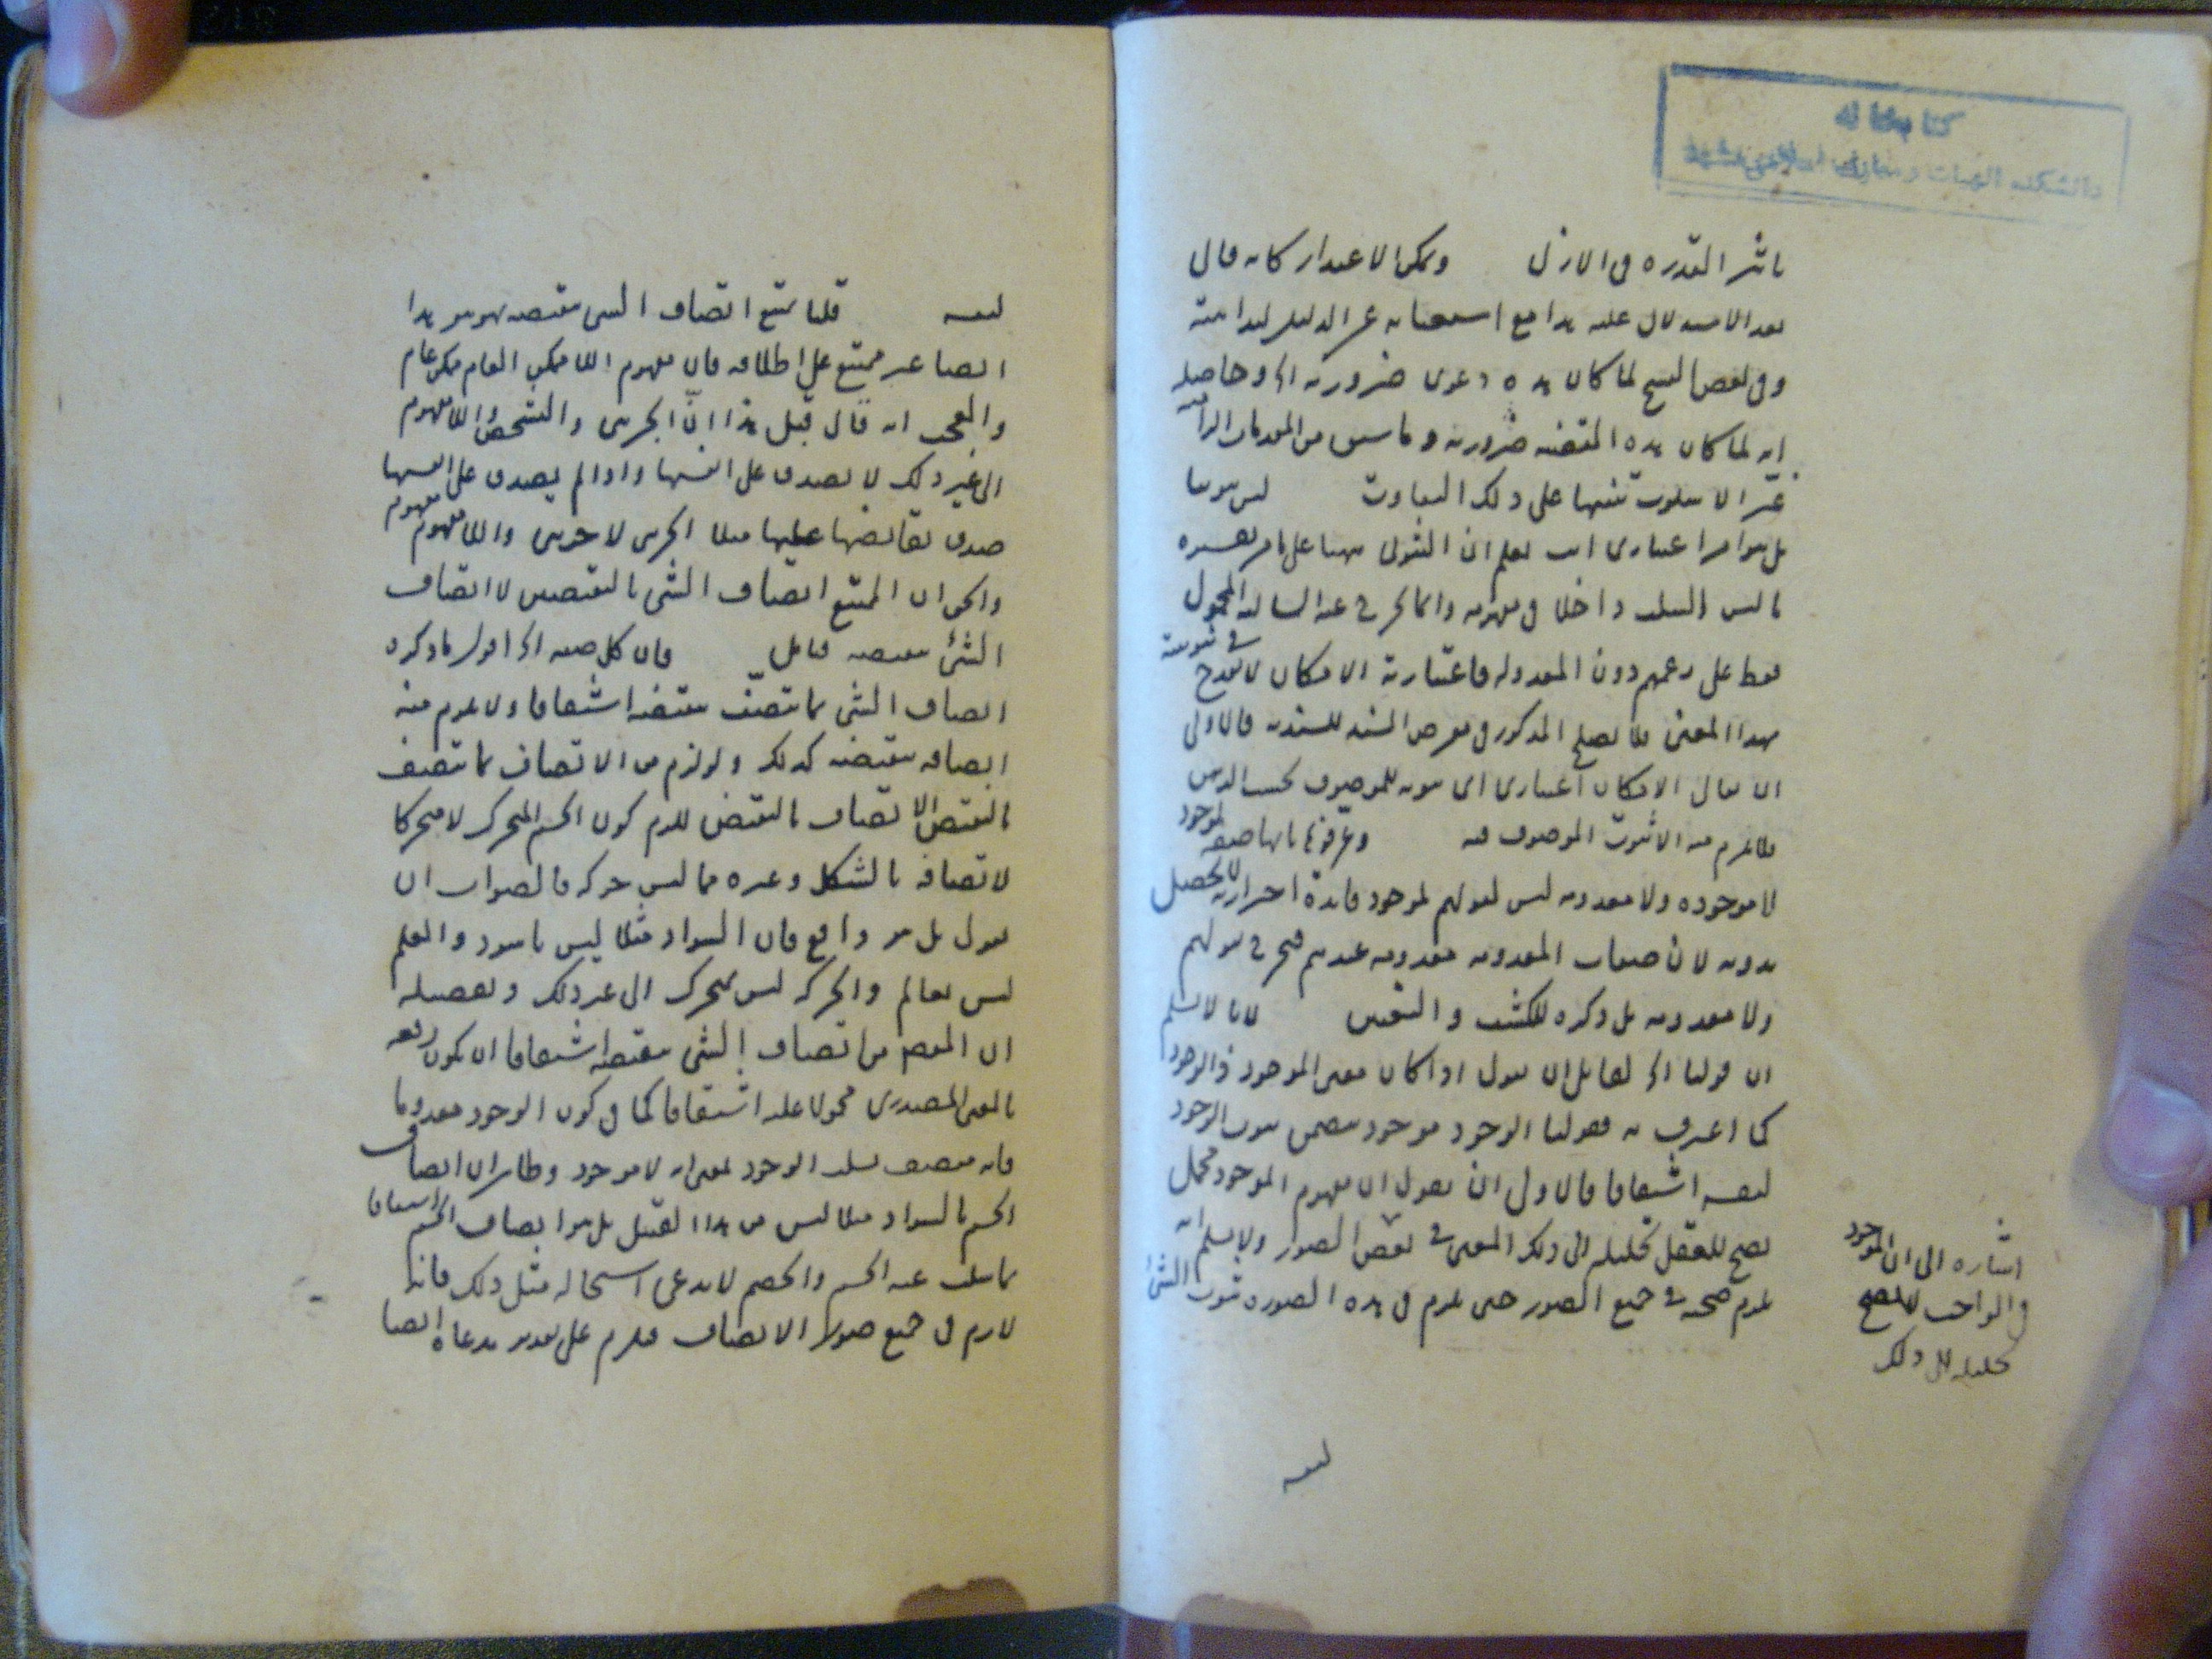 كتابخانه
دانشكده الهيات و معارف اسلامى مشهد
تاثير القدرة فى الازل ويمكن الاعتذار كانه قال
بعد الاستدلال عليه هذا مع استغنائه عن الدليل لبداهته
وفى بعض النسخ لما كان هذه دعوى ضرورية الخ وحاصله
انه لما كان هذه المقدمة ضرورية وما سبق من المقدمات
غير الاسلوب تنبيها على ذلك التفاوت ليس ثبوتيا
بل هو امر اعتبارى انت تعلم ان الثبوتى ههنا على ما مر تفسيره
ما ليس السلب داخلا فى مفهومه وانما يخرج عنه السالبة المحمول
فقط على زعمهم دون المعدولة فاعتبارية الامكان لا يقدح فى ثبوتيته
بهذا المعنى فلا يصلح المذكور فى معرض السند للسندية فالاولى
ان يقال الامكان اعتبارى اى ثبوته للموصوف بحسب الذهن
فلا يلزم منه الا ثبوت الموصوف فيه وعرفوها بانها صفة لموجود
لا موجودة ولا معدومة ليس لقولهم لموجود فائدة احترازية لا يحصل
بدونه لان صفات المعدومة معدومة عندهم فيخرج بقولهم
ولا معدومة بل ذكره للكشف و لانا لا نسلم
ان قولنا الخ لقائل ان يقول اذا كان معنى الموجود ذا الوجود
كما اعترف به فقولنا الوجود موجود يتضمن ثبوت الوجود
لنفسه اشتقاقا فالاولى ان يقول ان مفهوم الموجود مجمل
يصح للعقل تحليله الى ذلك المعنى فى بعض الصور ولا نسلم انه
يلزم صحته فى جميع الصور حتى يلزم فى هذه الصورة ثبوت الشئ
اشاره الى ان الموجود
فى الواجب لا يصح
تحليله الى ذلك
لنفسه
لنفسه قلنا يمتنع اتصاف الشى بنقيضه هو هو هذا
ايضا غير ممتنع على اطلاقه فان مفهوم اللاممكن العام ممكن عام
والعجب انه قال قبل هذا ان الجزئى والتشخص واللامفهوم
الى غير ذلك لا يصدق على انفسها واذا لم يصدق على انفسها
صدق نقائضها عليها مثلا الجزئى لا جزئى واللامفهوم مفهوم
والحق ان الممتنع اتصاف الشى بالنقيضين لا اتصاف
الشئ بنقيضه فتامل فان كل صفة الخ اقول ما ذكره
اتصاف الشى بما يتصف بنقيضه اشتقاقا ولا يلزم منه
اتصافه بنقيضه كذلك ولو لزم من الاتصاف بما يتصف
بالنقيض الاتصاف بالنقيض للزم كون الجسم المتحرك لا متحركا
لاتصافه بالشكل وغيره مما ليس حركة فالصواب ان
يقول بل هو واقع فان السواد مثلا ليس باسود والعلم
ليس بعالم والحركة ليس بمتحرك الى غير ذلك وتفصيله
ان من اتصاف الشى بنقيضه اشتقاقا ان يكون رفعه
بالمعنى المصدرى محمولا عليه اشتقاقا كما فى كون الوجود معدوما
فانه متصف بسلب الوجود بمعنى انه لا موجود وظاهر ان اتصاف
الجسم بالسواد مثلا ليس من هذا القبيل بل هو اتصاف الجسم اشتقاقا
بما سلب عنه الجسم والخصم لا يدعى استحالة مثل ذلك فانه
لازم فى جميع صور الاتصاف فلزم على تقدير مدعاه ايضا